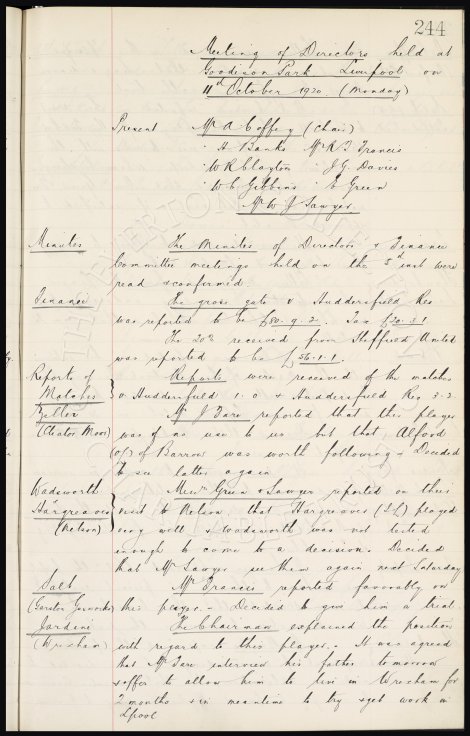 244
Meeting of Directors held at
Goodison Park Liverpool on
11th October 1920. (Monday)
Present Mr A Coffey (Chair)
" H Banks Mr R. Francis
" W R Clayton " J G. Davies
" W C Gibbins " E Green
Mr W J Sawyer.
Minutes The Minutes of Directors & Finance
Committee meetings held on the 5th inst were
read & confirmed.
Finance The gross gate v Huddersfield Res
was reported to be £80.9.2. Tax £20.3.1
The 20% received from Sheffield United
was reported to be £56.1.1.
Reports of Matches Reports were received of the matches
v. Huddersfield 1.0 & Huddersfield Res 3.2
(Cleator Moor) Mr J Fare reported that this player
was of no use to us but that Alford
(o/s) of Barrow was worth following. Decided
to see latter again
Wadsworth Messrs Green & Sawyer reported on their
Hargreaves visit to Nelson, that Hargreaves played
(Nelson) very well & Wadsworth was not tested
enough to come to a decision. Decided
that Mr Sawyer see them again next Saturday
Salt Mr Francis reported favorably on
(Garston Gasworks) this player. Decided to give him a trial.
Jardine The Chairman explained the position
(Wrexham) with regard to this player. It was agreed
that Mr Fare interview his father tomorrow
& offer to allow him to live in Wrexham for
2 months & in meantime to try & get work in
Lpool